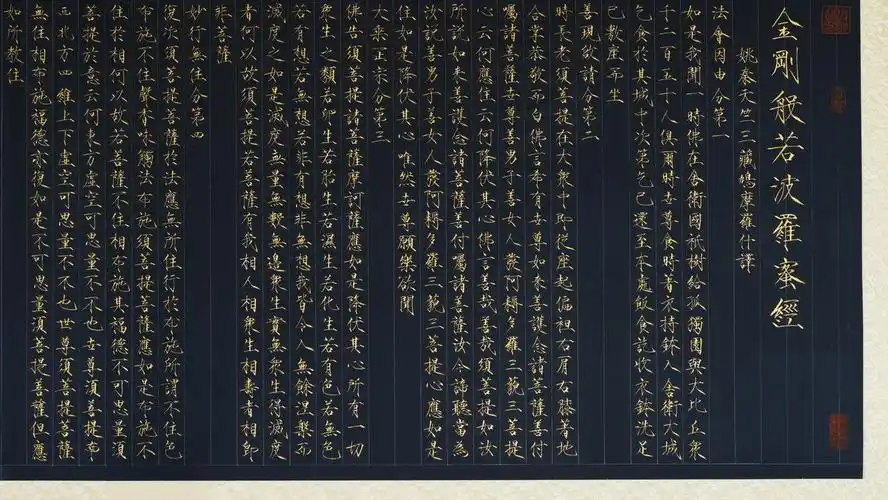 金剛般若波羅蜜經
姚秦天竺三藏鳩摩羅什譯
法會因由分第一
如是我聞一時佛在舍衛國祇樹給孤獨園與大比丘眾
千二百五十人俱爾時世尊食時著衣持鉢入舍衛大城
乞食於其城中次第乞已還至本處飯食訖收衣鉢洗足
已敷座而坐
善現啟請分第二
時長老須菩提在大眾中即從座起偏袒右肩右膝著地
合掌恭敬而白佛言希有世尊如來善護念諸菩薩善付
囑諸菩薩世尊善男子善女人發阿耨多羅三藐三菩提
心云何應住云何降伏其心佛言善哉善哉須菩提如汝
所說如來善護念諸菩薩善付囑諸菩薩汝今諦聽當為
汝說善男子善女人發阿耨多羅三藐三菩提心應如是
住如是降伏其心唯然世尊願樂欲聞
大乘正宗分第三
佛告須菩提諸菩薩摩訶薩應如是降伏其心所有一切
眾生之類若卵生若胎生若濕生若化生若有色若無色
若有想若無想若非有想非無想我皆令入無餘涅槃而
滅度之如是滅度無量無數無邊眾生實無眾生得滅度
者何以故須菩提若菩薩有我相人相眾生相壽者相即
非菩薩
妙行無住分第四
復次須菩提菩薩於法應無所住行於布施所謂不住色
布施不住聲香味觸法布施須菩提菩薩應如是布施不
住於相何以故若菩薩不住相布施其福德不可思量須
菩提於意云何東方虛空可思量不不也世尊須菩提南
西北方四維上下虛空可思量不不也世尊須菩提菩薩
無住相布施福德亦復如是不可思量須菩提菩薩但應
如所教住